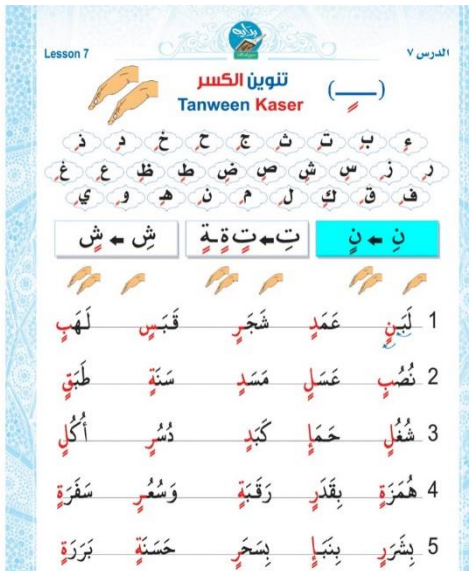 بداية
Lesson 7 الدرس ٧
تنوين الكسر (ـــٍـــ)
Tanween Kaser
ءٍ بٍ تٍ ثٍ جٍ حٍ خٍ دٍ ذٍ
رٍ زٍ سٍ شٍ صٍ ضٍ طٍ ظٍ عٍ غٍ
فٍ قٍ كٍ لٍ مٍ نٍ هٍ وٍ يٍ
نِ ← نٍ تِ ← تٍ ةٍ ـةٍ شِ ← شٍ
1 لَبَنٍ عَمَدٍ شَجَرٍ قَبَسٍ لَهَبٍ
2 نُصُبٍ عَسَلٍ مَسَدٍ سَنَةٍ طَبَقٍ
3 شُغُلٍ حَمَإٍ كَبَدٍ دُسُرٍ أُكُلٍ
4 هُمَزَةٍ بِقَدَرٍ رَقَبَةٍ وَسُعُرٍ سَفَرَةٍ
5 بِشَرَرٍ بِنَبَإٍ بِسَحَرٍ حَسَنَةٍ بَرَرَةٍ